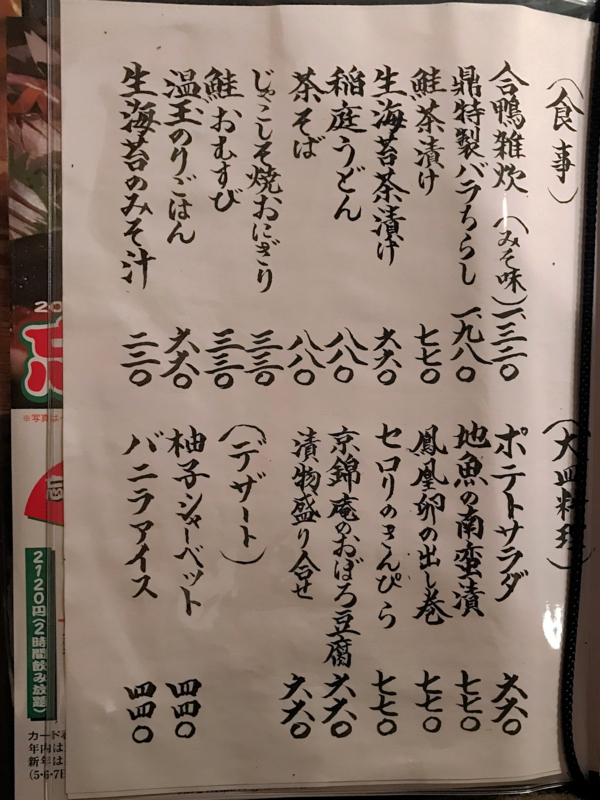 (食事)
合鴨雑炊(みそ味) 一、三二〇
鼎特製バラちらし 一、九八〇
鮭茶漬け 七七〇
生海苔茶漬け 六六〇
稲庭うどん 八八〇
茶そば 八八〇
じゃこしそ焼おにぎり 三三〇
鮭おむすび 三三〇
温玉のりごはん 六六〇
生海苔のみそ汁 二二〇
(大皿料理)
ポテトサラダ 六六〇
地魚の南蛮漬 七七〇
鳳凰卵の出し巻 七七〇
セロリのきんぴら 七七〇
京錦庵のおぼろ豆腐 六六〇
漬物盛り合せ 六六〇
(デザート)
柚子シャーベット 四四〇
バニラアイス 四四〇
20
※写真は
忘
2120円(2時間飲み放題)
カード
年内は
新年は
(5・6・7日